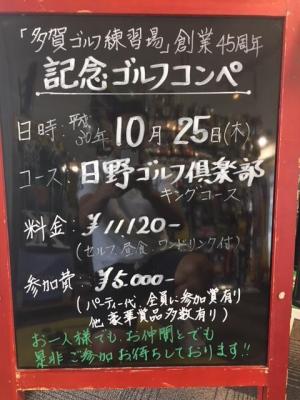 「多賀ゴルフ練習場」創業45周年
記念ゴルフコンペ
日時:平成30年10月25日(木)
コース:日野ゴルフ倶楽部
キングコース
料金:¥11120-
(セルフ、昼食、ワンドリンク付)
参加費:¥5.000-
(パーティー代、全員に参加賞有り
他豪華賞品多数有り)
お一人様でも、お仲間とでも
是非ご参加お待ちしております!!